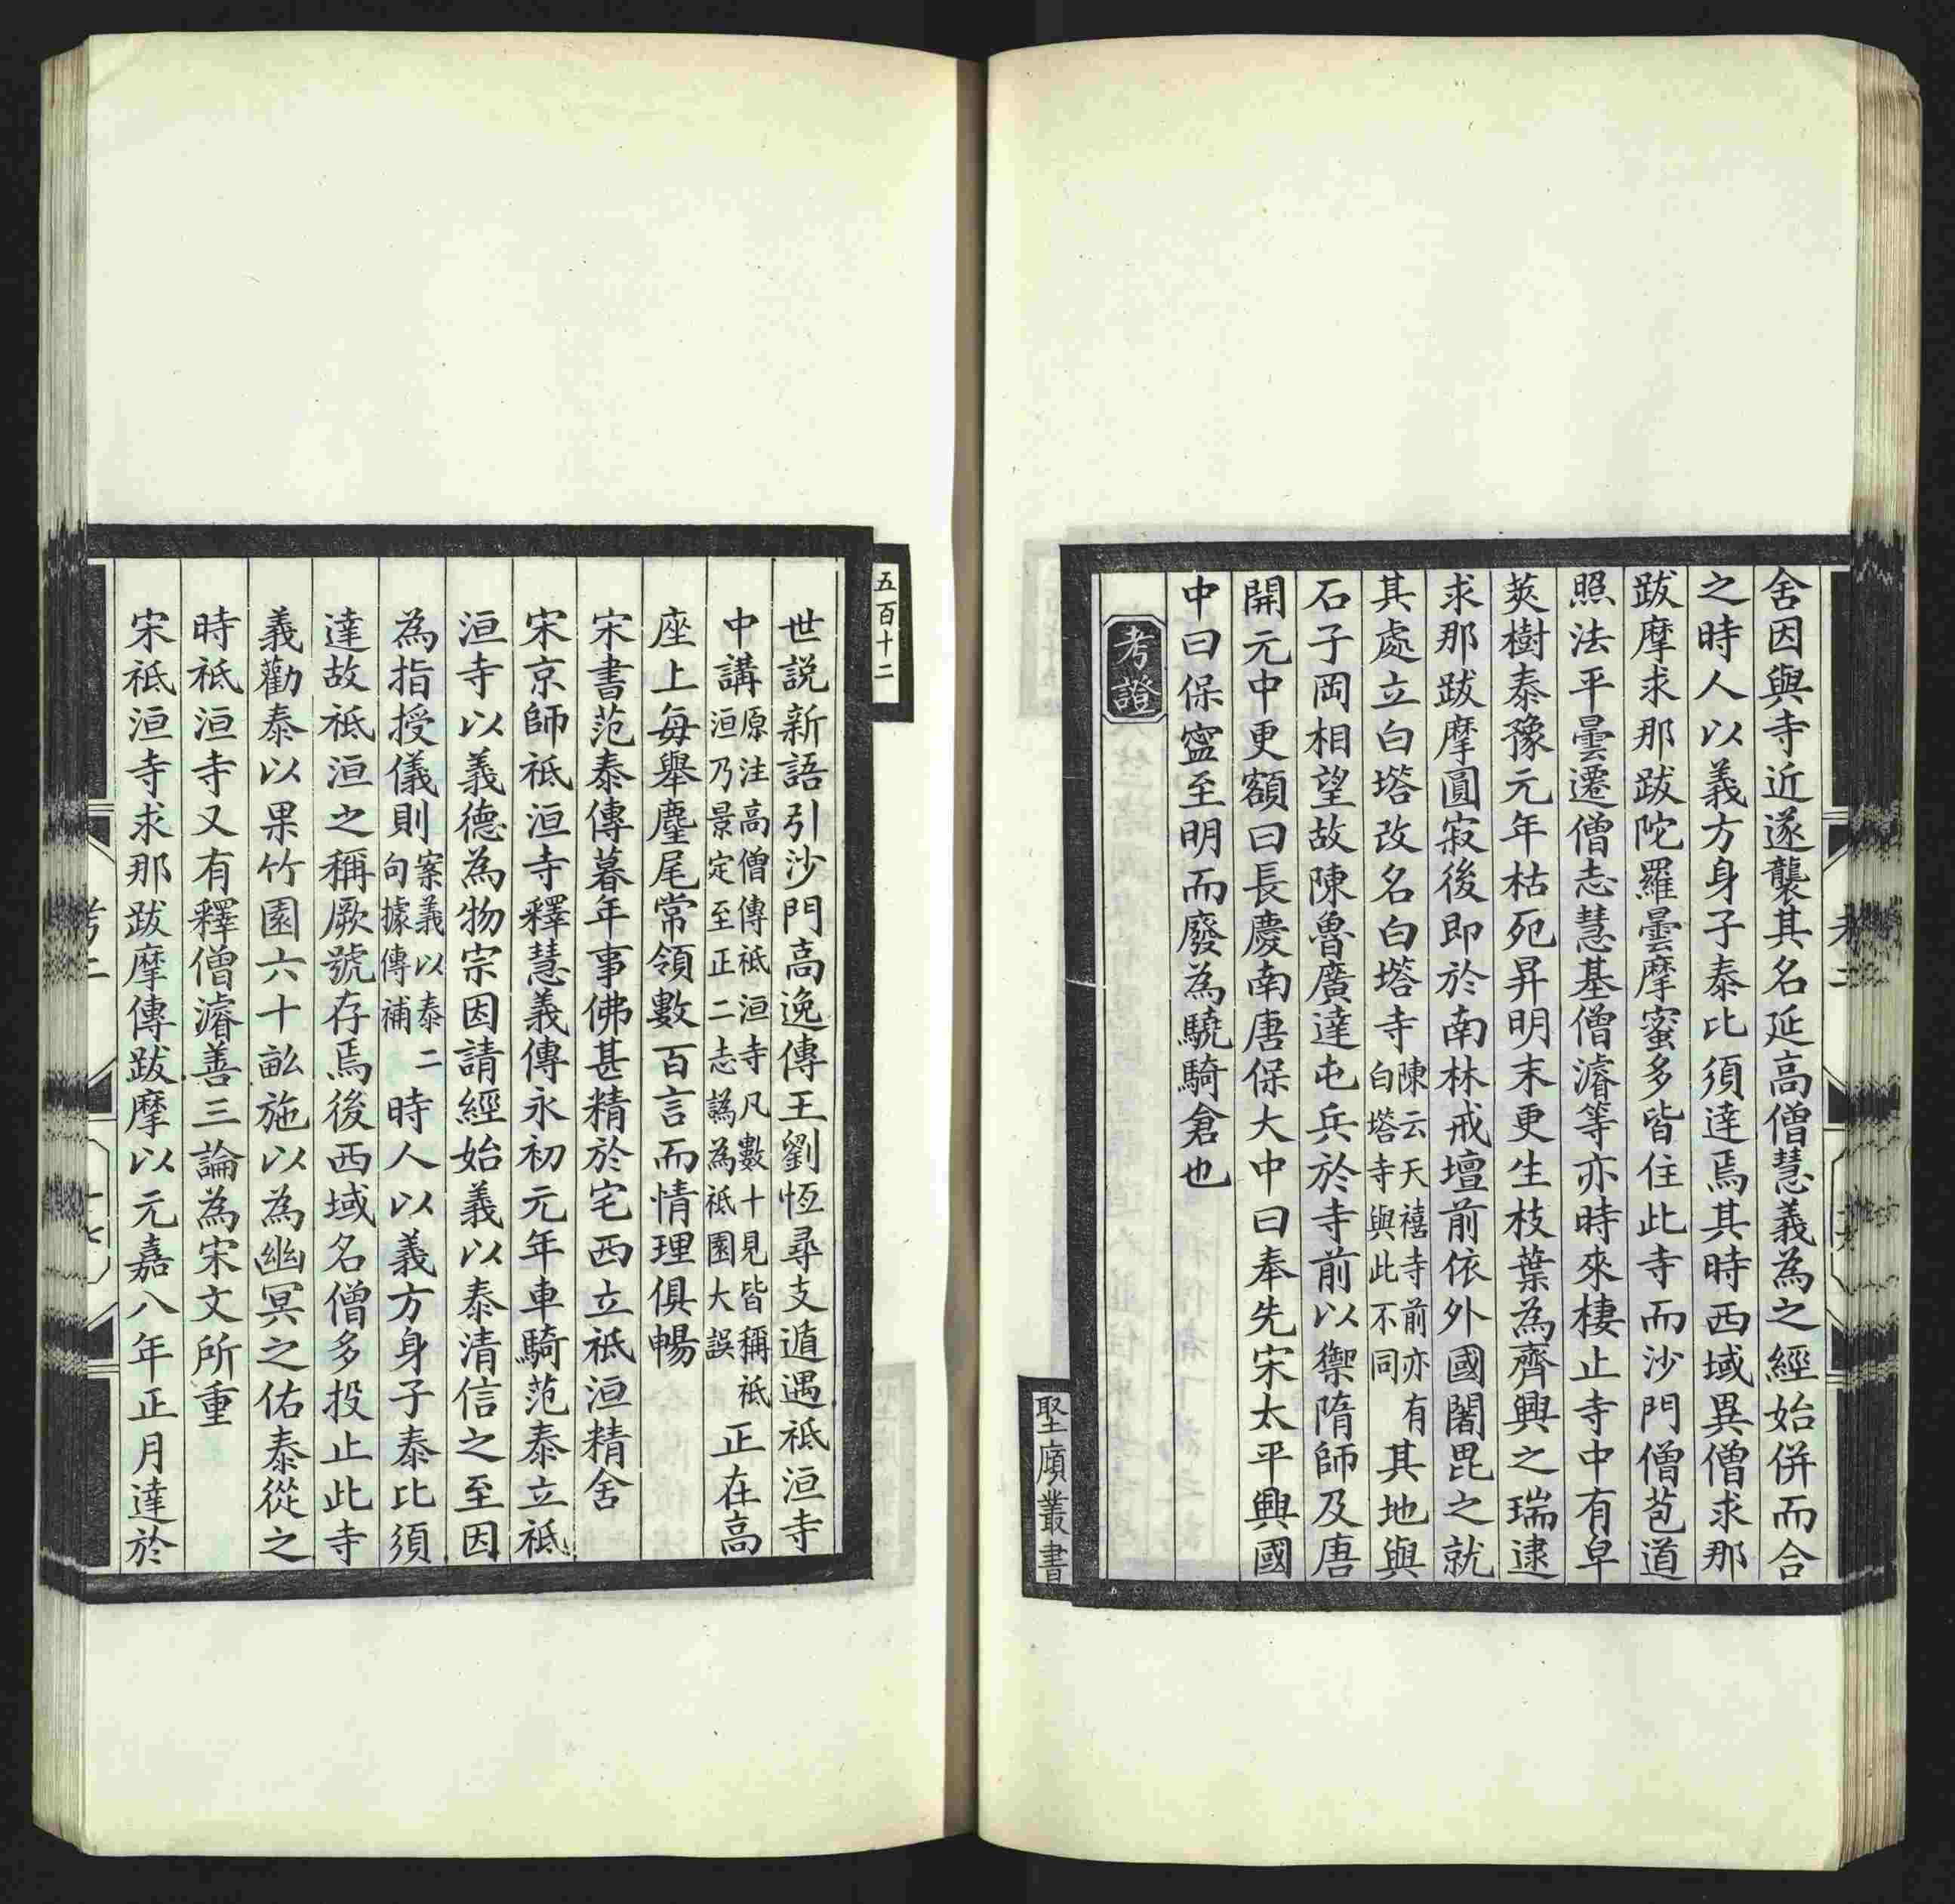 舍因與寺近遂襲其名延高僧慧義為之經始併而合
之時人以義方身子泰比須達焉其時西域異僧求那
跋摩求那跋陀羅曇摩蜜多皆住此寺而沙門僧苞道
照法平曇遷僧志慧基僧濬等亦時來棲止寺中有皁
莢樹泰豫元年枯死昇明末更生枝葉為齊興之瑞逮
求那跋摩圓寂後即於南林戒壇前依外國闍毘之就
其處立白塔改名白塔寺陳云天禧寺前亦有白塔寺與此不同其地與
石子岡相望故陳魯廣達屯兵於寺前以禦隋師及唐
開元中更額曰長慶南唐保大中曰奉先宋太平興國
中曰保寍至明而廢為驍騎倉也
考證
堅庼叢書
五百十二
世説新語引沙門高逸傳王劉恆尋支遁遇祗洹寺
中講原注高僧傳祗洹寺凡數十見皆稱祗洹乃景定至正二志譌為祗園大誤正在高
座上每舉麈尾常領數百言而情理俱暢
宋書范泰傳暮年事佛甚精於宅西立祗洹精舍
宋京師祗洹寺釋慧義傳永初元年車騎范泰立祗
洹寺以義德為物宗因請經始義以泰清信之至因
為指授儀則案義以泰二句據傳補時人以義方身子泰比須
達故祗洹之稱厥號存焉後西域名僧多投止此寺
義勸泰以果竹園六十畝施以為幽冥之佑泰從之
時祗洹寺又有釋僧濬善三論為宋文所重
宋祗洹寺求那跋摩傳跋摩以元嘉八年正月達於